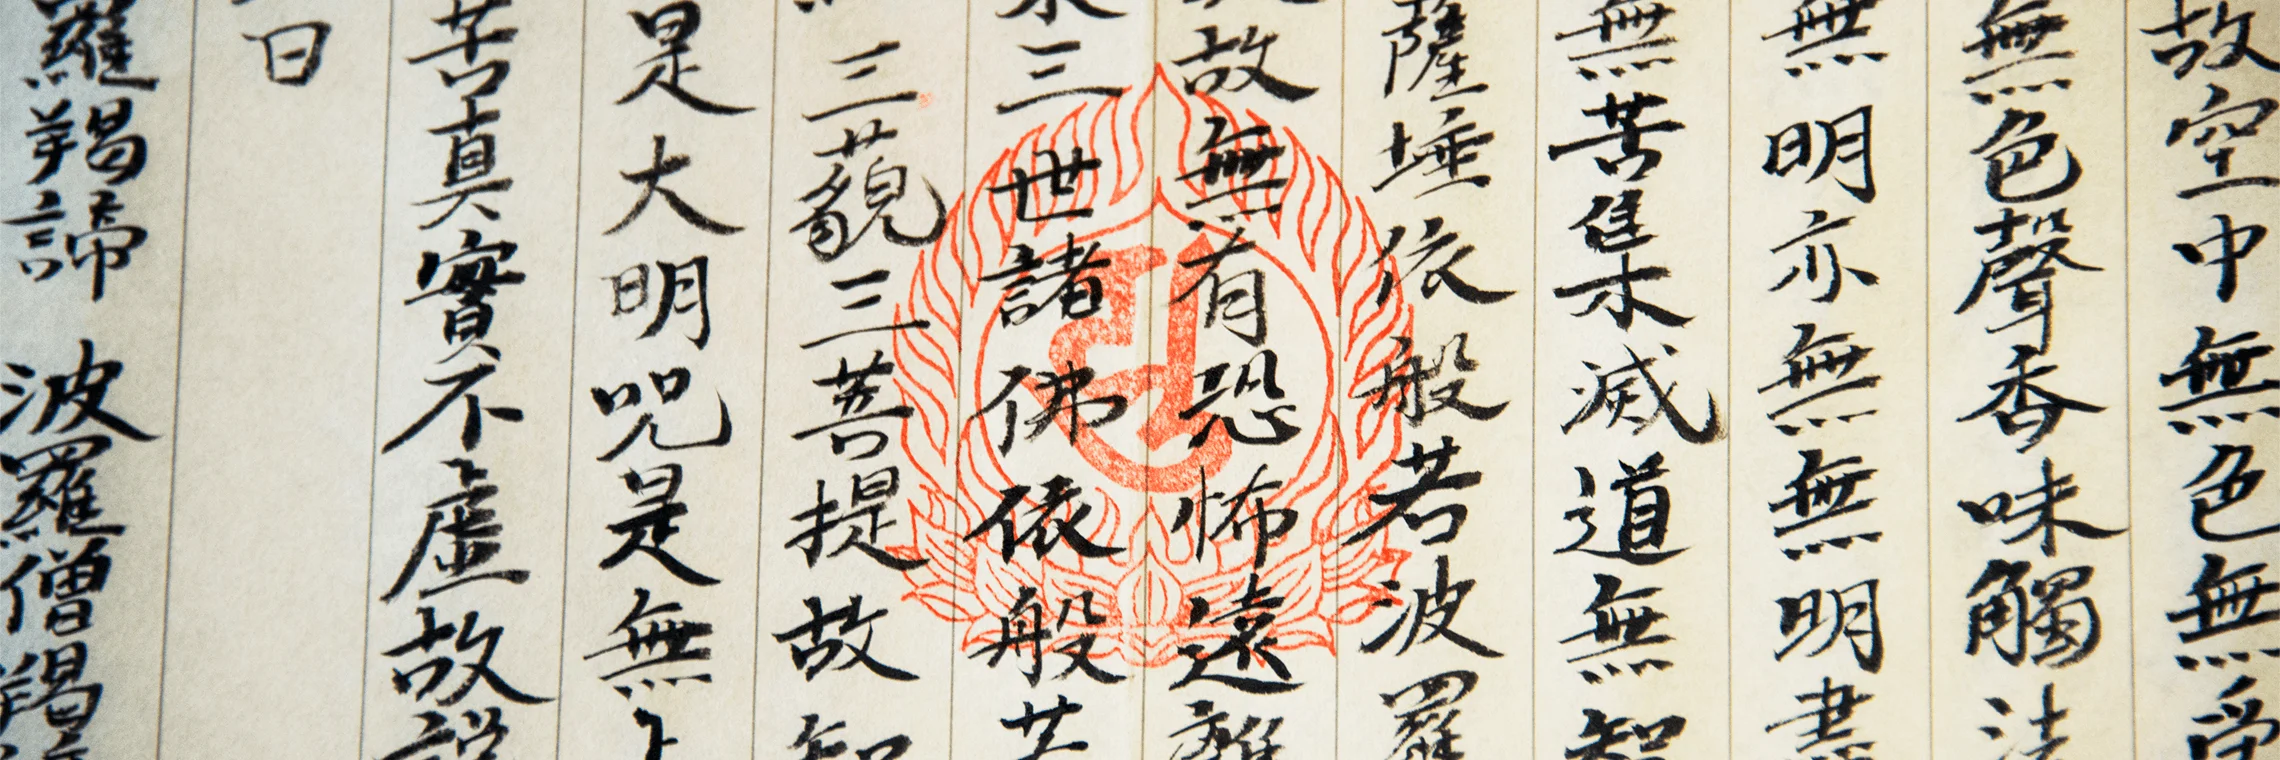 故空中無色無受
無色聲香味觸法
無明亦無無明盡
無苦集滅道無智
薩埵依般若波羅
故無有恐怖遠離
三世諸佛依般若
三藐三菩提故知
是大明咒是無
苦真實不虛故說
曰
羅羯諦 波羅僧羯